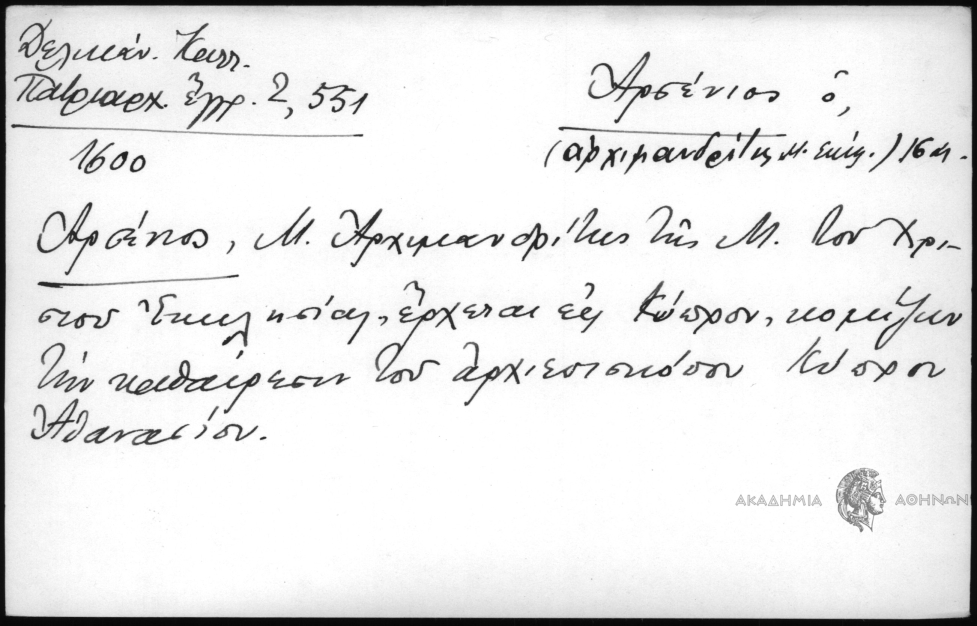 Δελικάν. Καλλ.
Πατριαρχ. ἔγγρ. 2, 551
1600
Ἀρσένιος ὁ,
(ἀρχιμανδρίτης Μ. Ἐκκλ.) 16 αι.
Ἀρσένιος, Μ. Ἀρχιμανδρίτης τῆς Μ. τοῦ Χρι-
στοῦ Ἐκκλησίας, ἔρχεται εἰς Κύπρον, κομίζων
τὴν καθαίρεσιν τοῦ ἀρχιεπισκόπου Κύπρου
Ἀθανασίου.
ΑΚΑΔΗΜΙΑ ΑΘΗΝΩΝ